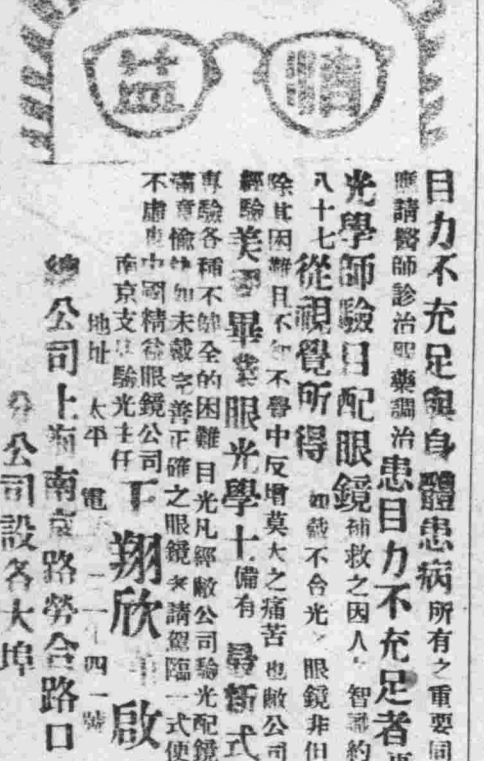 精益
目力不充足與身體患病所有之重要同
應請醫師診治服藥調治患目力不充足者
光學師驗目配眼鏡補救之因人智識約
八十七從視覺所得如戴不合光之眼鏡非但
除其困難且不知不覺中反增莫大之痛苦也敝公司
經驗美國畢業眼光學士備有最新式
專驗各種不健全的困難目光凡經敝公司驗光配鏡
滿意愉快如未戴完善正確之眼鏡者請駕臨一式便
不虛中國精益眼鏡公司
南京支驗光主任 翔欣 啟
地址 太平 電 四一號
總公司上海南京路勞合路口
分公司設各大埠